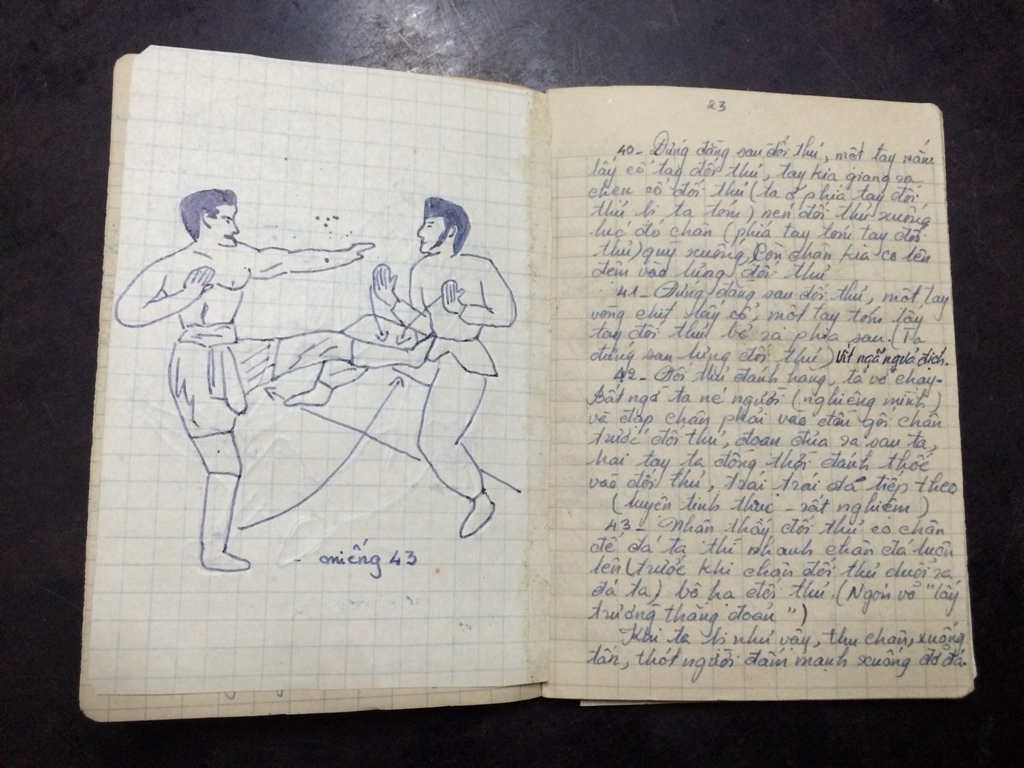 miếng 43
23
40_ Đứng đằng sau đối thủ, một tay nắm
lấy cổ tay đối thủ, tay kia giang ra
chẹn cổ đối thủ (ta ở phía tay đối
thủ bị ta tóm) nén đối thủ xuống
lúc đó chân (phía tay tóm tay đối
thủ) quỳ xuống, Còn chân kia co lên
đệm vào lưng đối thủ
41_ Đứng đằng sau đối thủ, một tay
vòng chẹt lấy cổ, một tay tóm lấy
tay đối thủ bẻ ra phía sau. (Ta
đứng sau lưng đối thủ) Vít ngã ngửa địch.
42_ Đối thủ đánh hăng, ta vờ chạy.
Bất ngờ ta né người (nghiêng mình)
và đạp chân phải vào đầu gối chân
trước đối thủ, đoạn đưa ra sau ta,
hai tay ta đồng thời đánh thốc
vào đối thủ, trái đá tiếp theo
(luyện tinh thục - rất nghiệm)
43_ Nhận thấy đối thủ co chân
để đá ta thì nhanh chân đá luôn
lên (trước khi chân đối thủ duỗi ra
đá ta) bộ hạ đối thủ. (Ngón võ "lấy
trường thắng đoản")
Khi ta bị như vậy, thu chân, xuống
tấn, thót người đấm mạnh xuống đỡ đá.